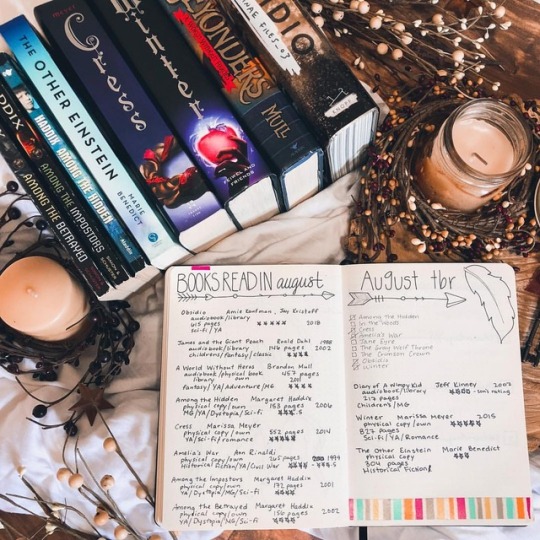 HADDIX
AMONG THE BETRAYED
HADDIX
AMONG THE IMPOSTORS
HADDIX AMONG THE HIDDEN
THE OTHER EINSTEIN
MARIE BENEDICT
MEYER
Cress
Winter
FEIWEL AND FRIENDS
MULL
FILES_03
BOOKS READ IN august
Obsidio Amie Kaufman, Jay Kristoff
audiobook/library
615 pages 2018
sci-fi/YA
James and the Giant Peach Roald Dahl
audiobook/library 146 pages 2002
childrens/fantasy/classic
A World Without Heros Brandon Mull
audiobook/physical book 457 pages
library own 2011
Fantasy/YA/Adventure/MG
Among the Hidden Margaret Haddix
physical copy/own 153 pages 2006
MG/YA/Dystopia/Sci-fi .5
Cress Marissa Meyer
physical copy/own 552 pages 2014
YA/sci-fi/romance
Amelia's War Ann Rinaldi
physical copy/own 265 pages 1999
Historical Fiction/YA/Civil War
Among the Impostors Margaret Haddix
physical copy/own 172 pages 2001
YA/Dystopia/MG/Sci-fi
Among the Betrayed Margaret Haddix
physical copy/own 156 pages 2002
YA/Dystopia/MG/Sci-fi
August tbr
Among the Hidden
In the Woods
Cress
Amelia's War
Jane Eyre
The Gray Wolf Throne
The Crimson Crown
Obsidio
Winter
Diary of a Wimpy Kid Jeff Kinney
217 pages
Childrens/MG
Winter Marissa Meyer 2015
physical copy/own
827 pages
Sci-fi/YA/Romance
The Other Einstein Marie Benedict
physical copy
304 pages
Historical Fiction